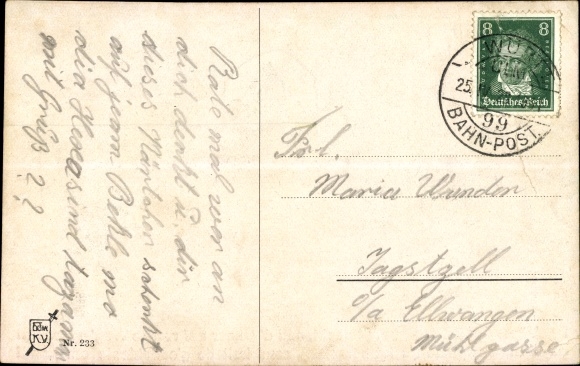 Rate mal wer an
dich denkt u. dir
dieses Kärtchen schenkt
auf jeam Behle mo
dia Hexa sind
mit Gruß ? ?
Nr. 233
8 8
Deutsches Reich
25.
99
BAHN-POST
Frl.
Maria Wunder
Jagstzell
c/a Ellwangen
Mühlgasse